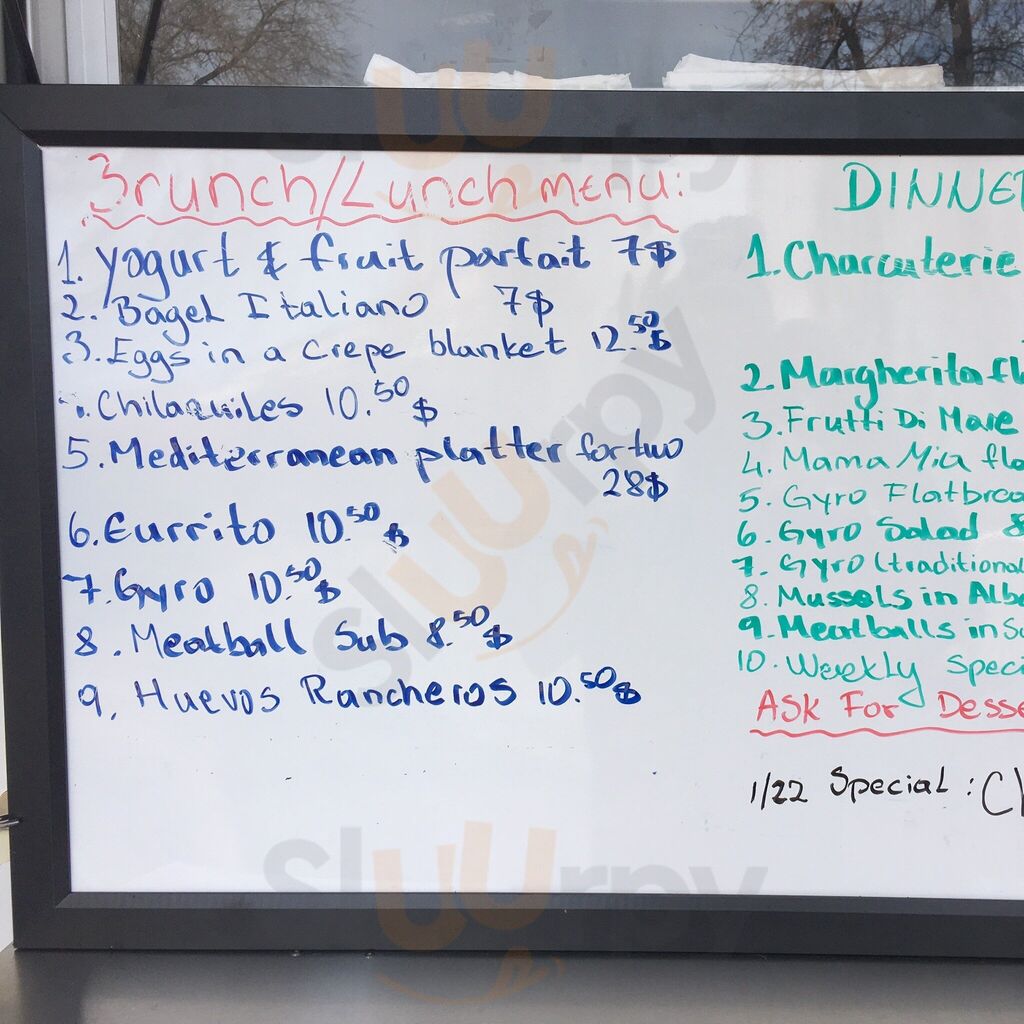 Brunch/Lunch menu:
1. Yogurt & fruit parfait 7$
2. Bagel Italiano 7$
3. Eggs in a crepe blanket 12.50$
. Chilaquiles 10.50$
5. Mediterranean platter for two
28$
6. Eurrito 10.50$
7. Gyro 10.50$
8. Meatball Sub 8.50$
9. Huevos Rancheros 10.50$
DINNE
1. Charcuterie
2. Margherita fl
3. Frutti Di Mare
4. Mama Mia fla
5. Gyro Flatbrea
6. Gyro Salad 8
7. Gyro (traditional
8. Mussels in Alb
9. Meatballs in S
10. Weekly Speci
Ask For Desse
1/22 Special : Ch
Sluurpy
Sluurpy